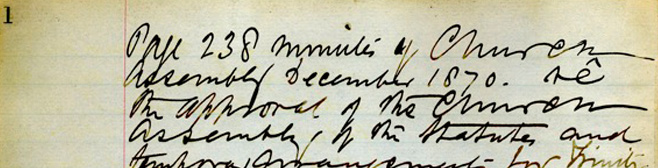 1
Page 238 minutes of Church
Assembly December 1870. re
the approval of the Church
Assembly, of the Statutes and
temporary arrangements for Trinity